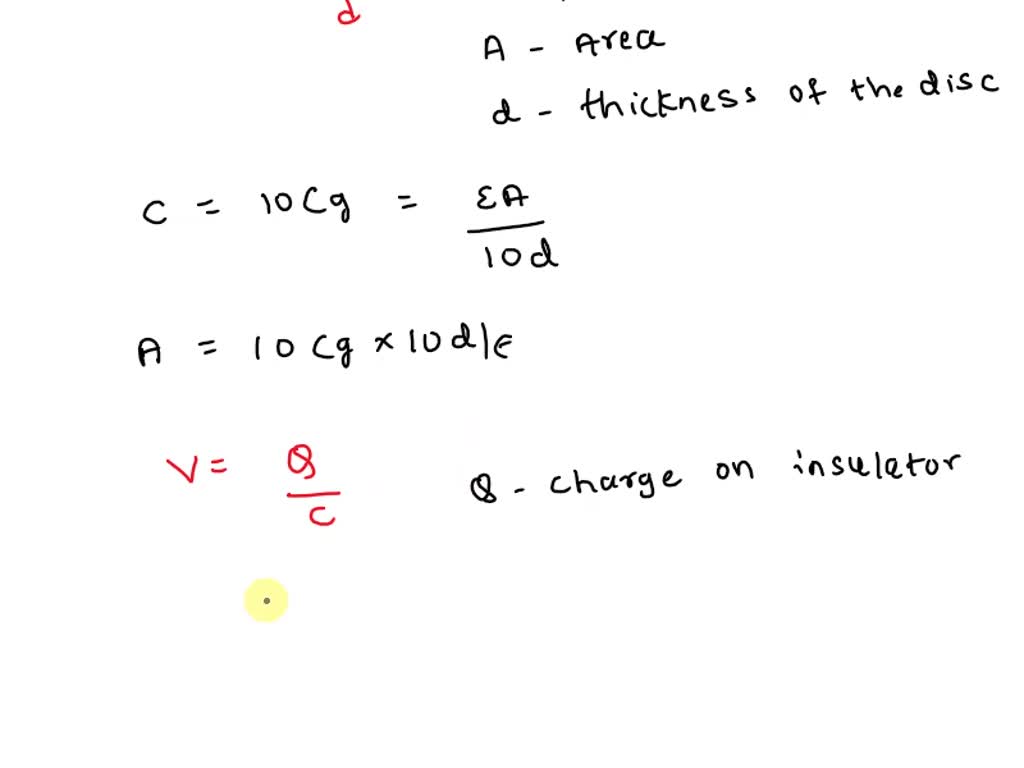 d
A - Area
d - thickness of the disc
C = 10Cg = εA / 10d
A = 10Cg × 10d/ϵ
V = Q / C
Q - charge on insulator